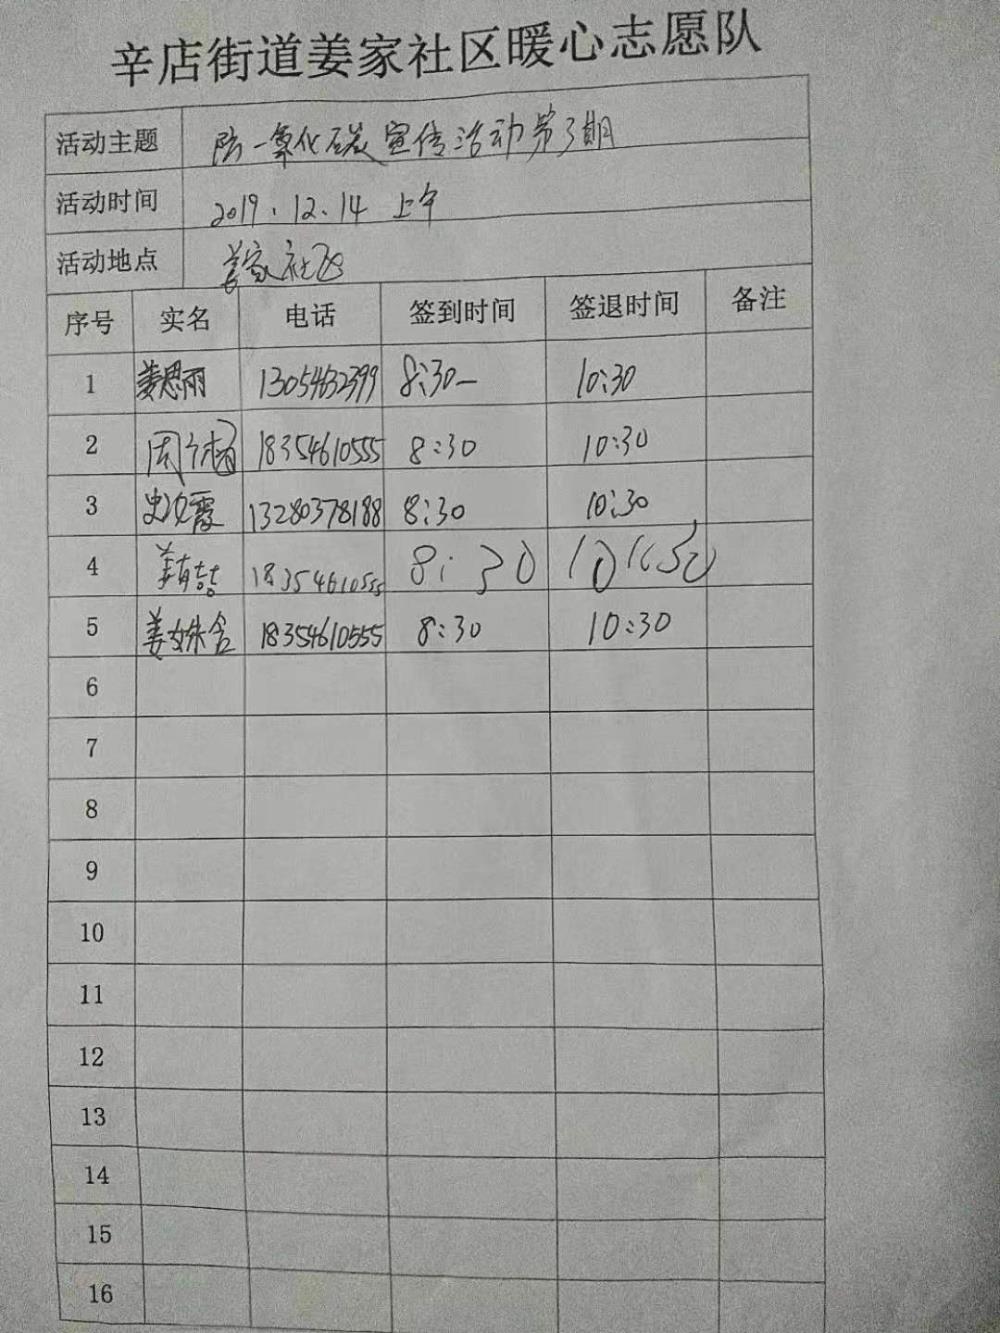 辛店街道姜家社区暖心志愿队
活动主题 防一氧化碳宣传活动第3期
活动时间 2019.12.14 上午
活动地点 姜家社区
序号 实名 电话 签到时间 签退时间 备注
1 姜思丽 13054632399 8:30- 10:30
2 周 18354610555 8:30 10:30
3 史文霞 13280378188 8:30 10:30
4 姜喆 18354610555 8:30
5 姜姝含 18354610555 8:30 10:30
6
7
8
9
10
11
12
13
14
15
16